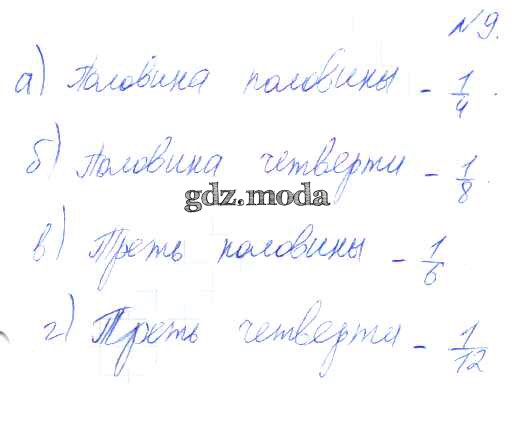 №9.
а) Половина половины - 1/4.
б) Половина четверти - 1/8.
gdz.moda
в) Треть половины - 1/6
г) Треть четверти - 1/12